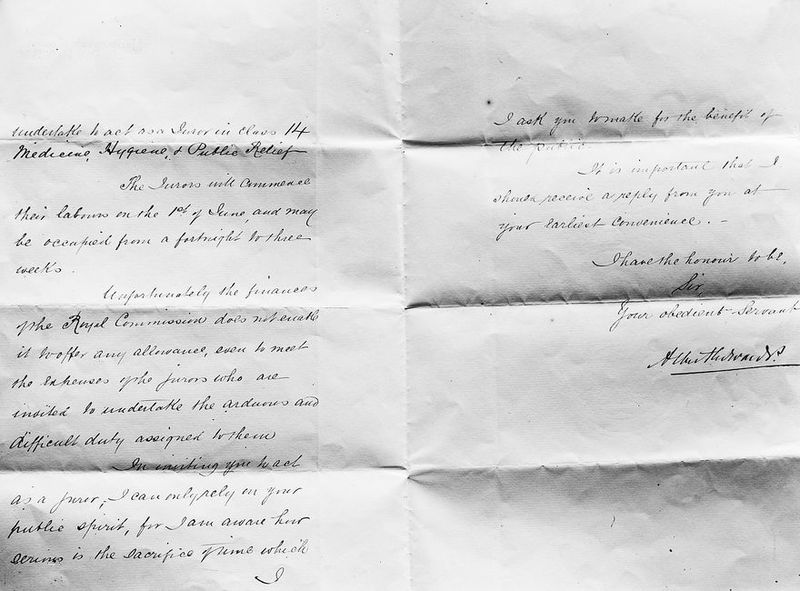 undertake to act as a Juror in Class 14
Medicine, Hygiene, & Public Relief
The Jurors will commence
their labours on the 1st of June, and may
be occupied from a fortnight to three
weeks.
Unfortunately the finances
of the Royal Commission does not enable
it to offer any allowance, even to meet
the expenses of the jurors who are
invited to undertake the arduous and
difficult duty assigned to them
In inviting you to act
as a juror, I can only rely on your
public spirit, for I am aware how
serious is the sacrifice of time which
I
I ask you to make for the benefit of
the public.
It is important that I
should receive a reply from you at
your earliest convenience. –
I have the honour to be,
Sir,
Your obedient Servant
Albert Edward P.